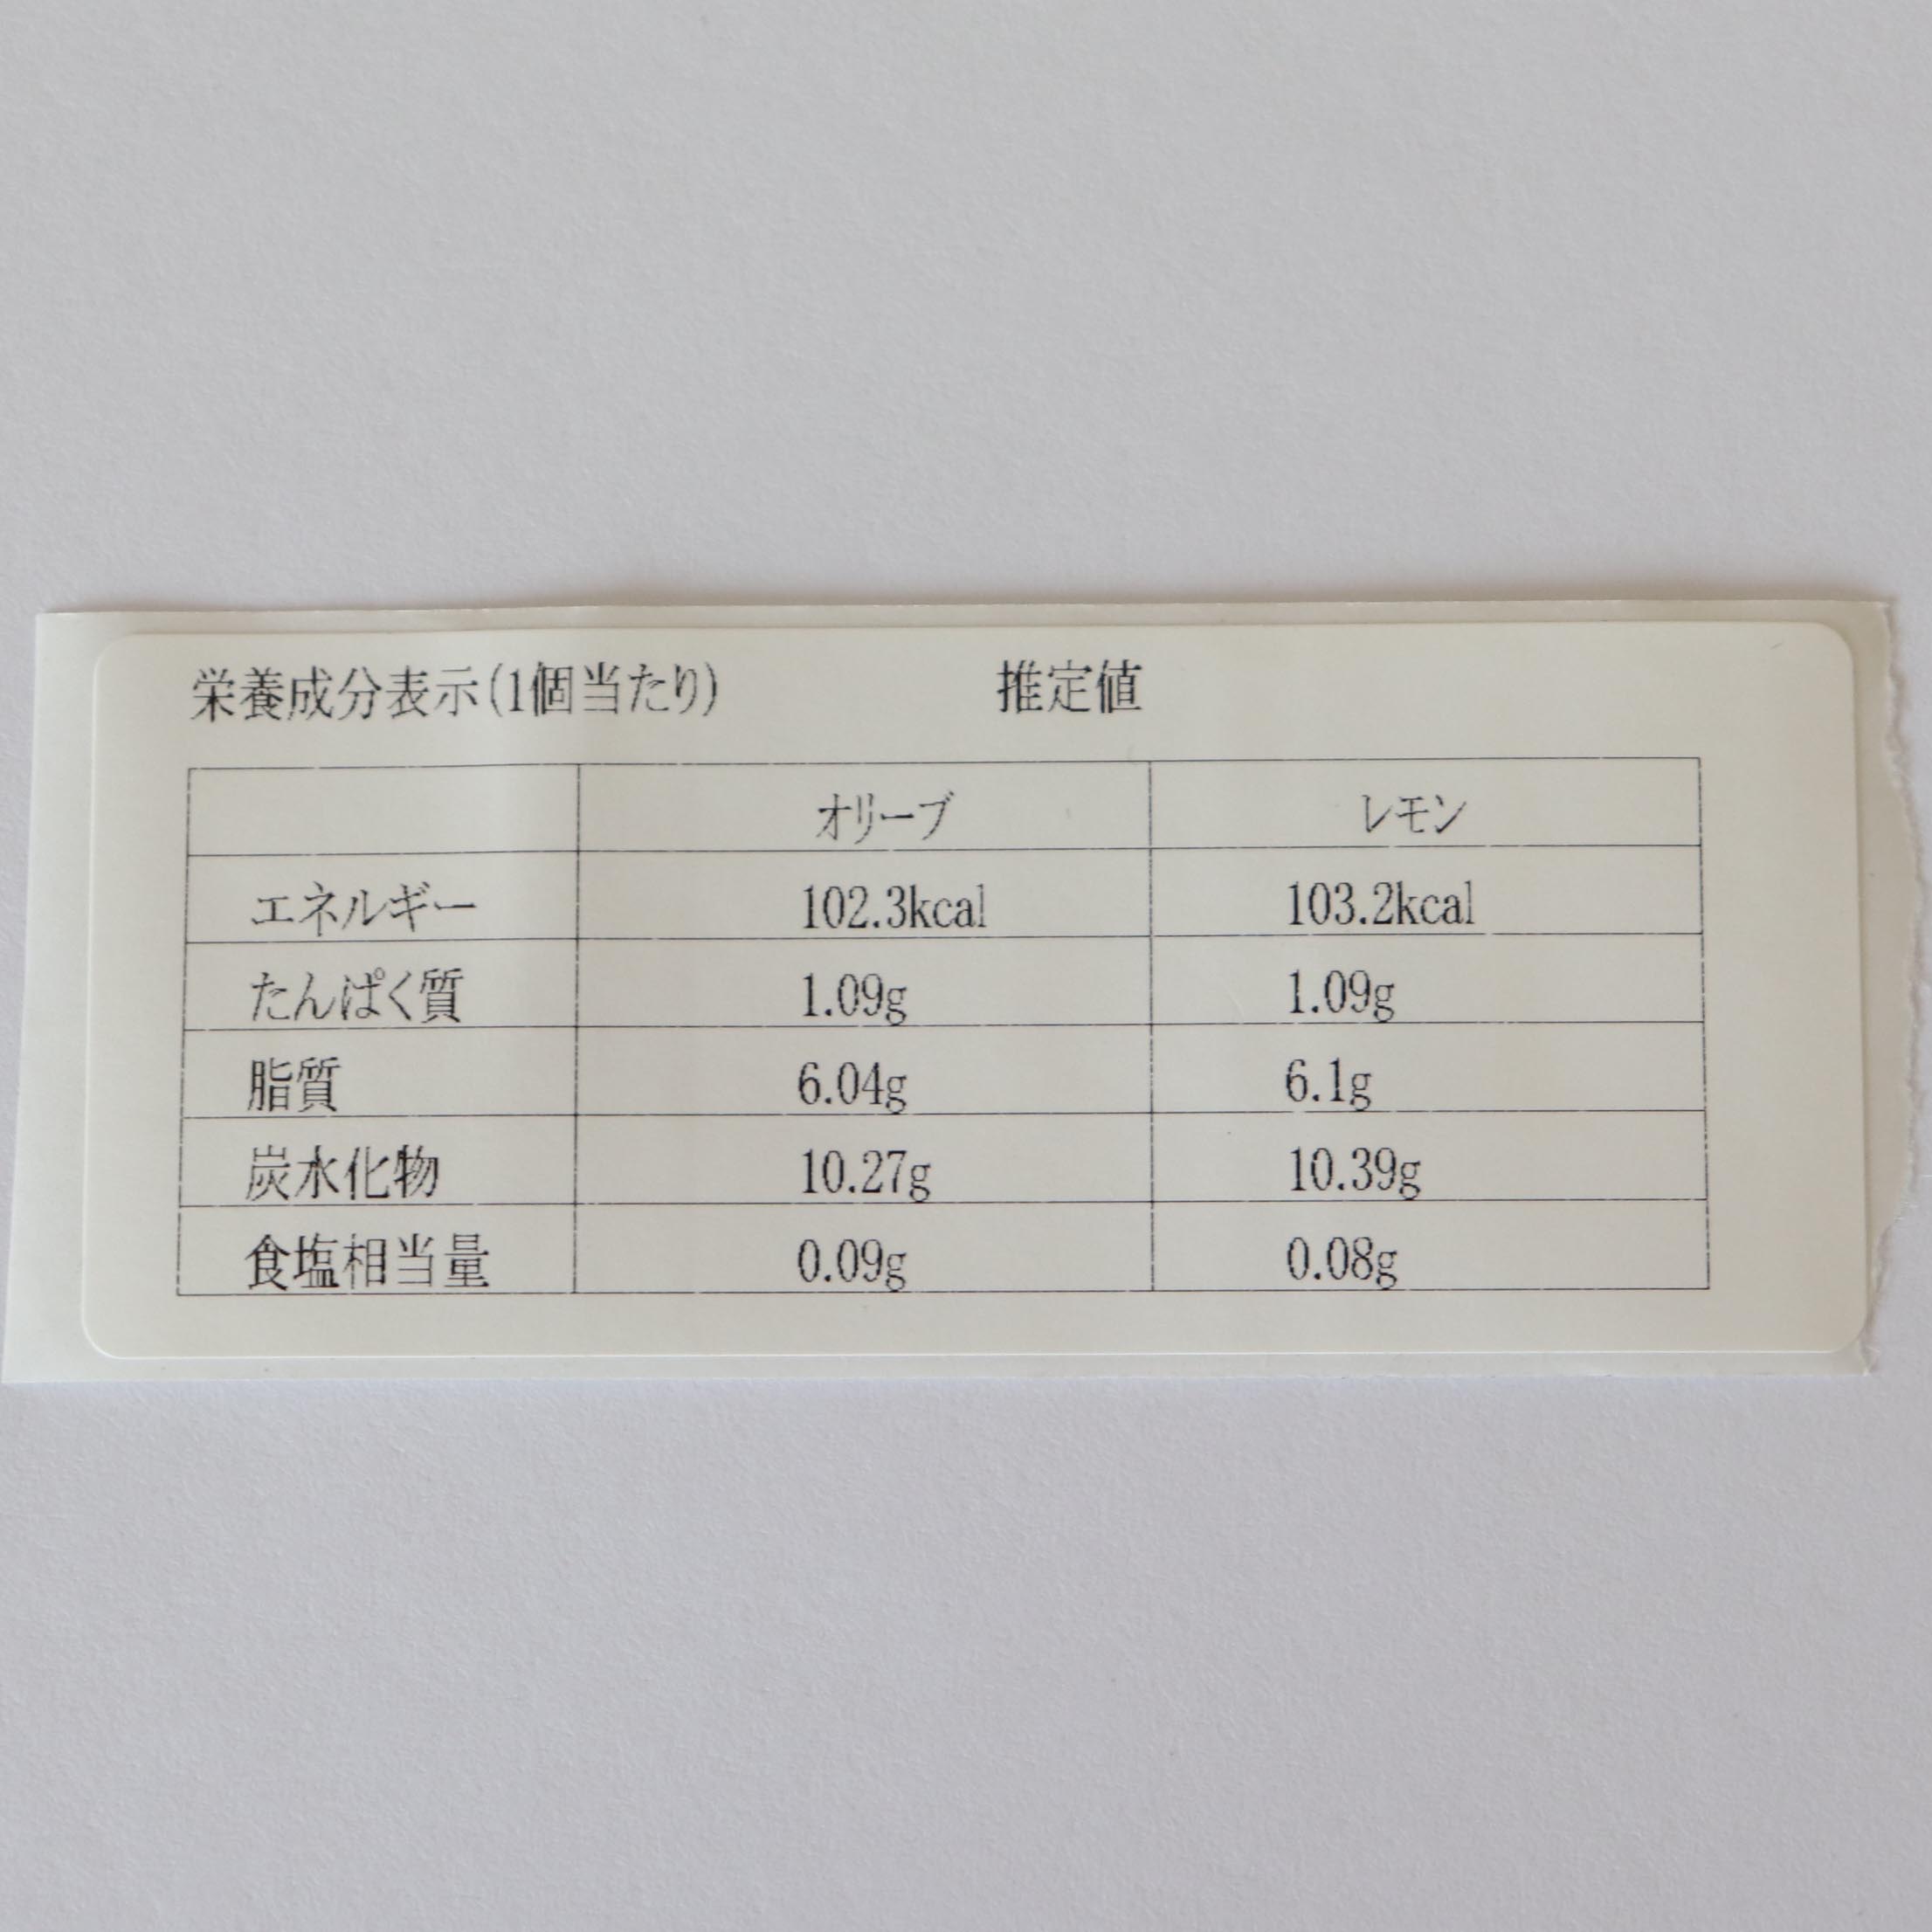 栄養成分表示(1個当たり) 推定値
オリーブ レモン
エネルギー 102.3kcal 103.2kcal
たんぱく質 1.09g 1.09g
脂質 6.04g 6.1g
炭水化物 10.27g 10.39g
食塩相当量 0.09g 0.08g